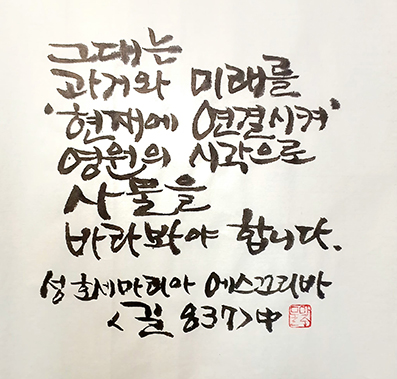 그대는
과거와 미래를
'현재에 연결시켜'
영원의 시각으로
사물을
바라봐야 합니다.
성 호세마리아 에스끄리바
<길 837>中